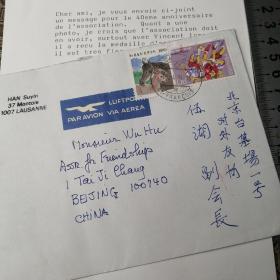 Cher ami, je vous envoie ci-joint
un message pour le 40ème anniversaire
de l'association. Quant a une
photo, je crois que l'association doit
en avoir, surtout avec Vincent
il a recu la medaille d'
est tres
HAN Suyin
37 Montoie
1007 LAUSANNE
LUFTPO
PAR AVION VIA AEREA
HELVETIA
Monsieur Wu Hu
Assn. for Friendships
1 Tai Ji Chang
BEIJING 100740
CHINA
北京台基場一号
对外友协
伍湖 副会長